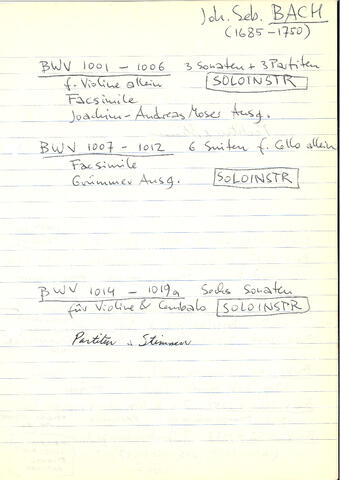 Joh. Seb. BACH
(1685-1750)
BWV 1001 - 1006 3 Sonaten + 3 Partiten
f. Violine allein SOLOINSTR
Facsimile
Joachim-Andreas Moser Ausg.
BWV 1007 - 1012 6 Suiten f. Cello allein
Facsimile
Grümmer Ausg. SOLOINSTR
BWV 1014 - 1019a Sechs Sonaten
für Violine & Cembalo SOLOINSTR
Partitur u Stimmen